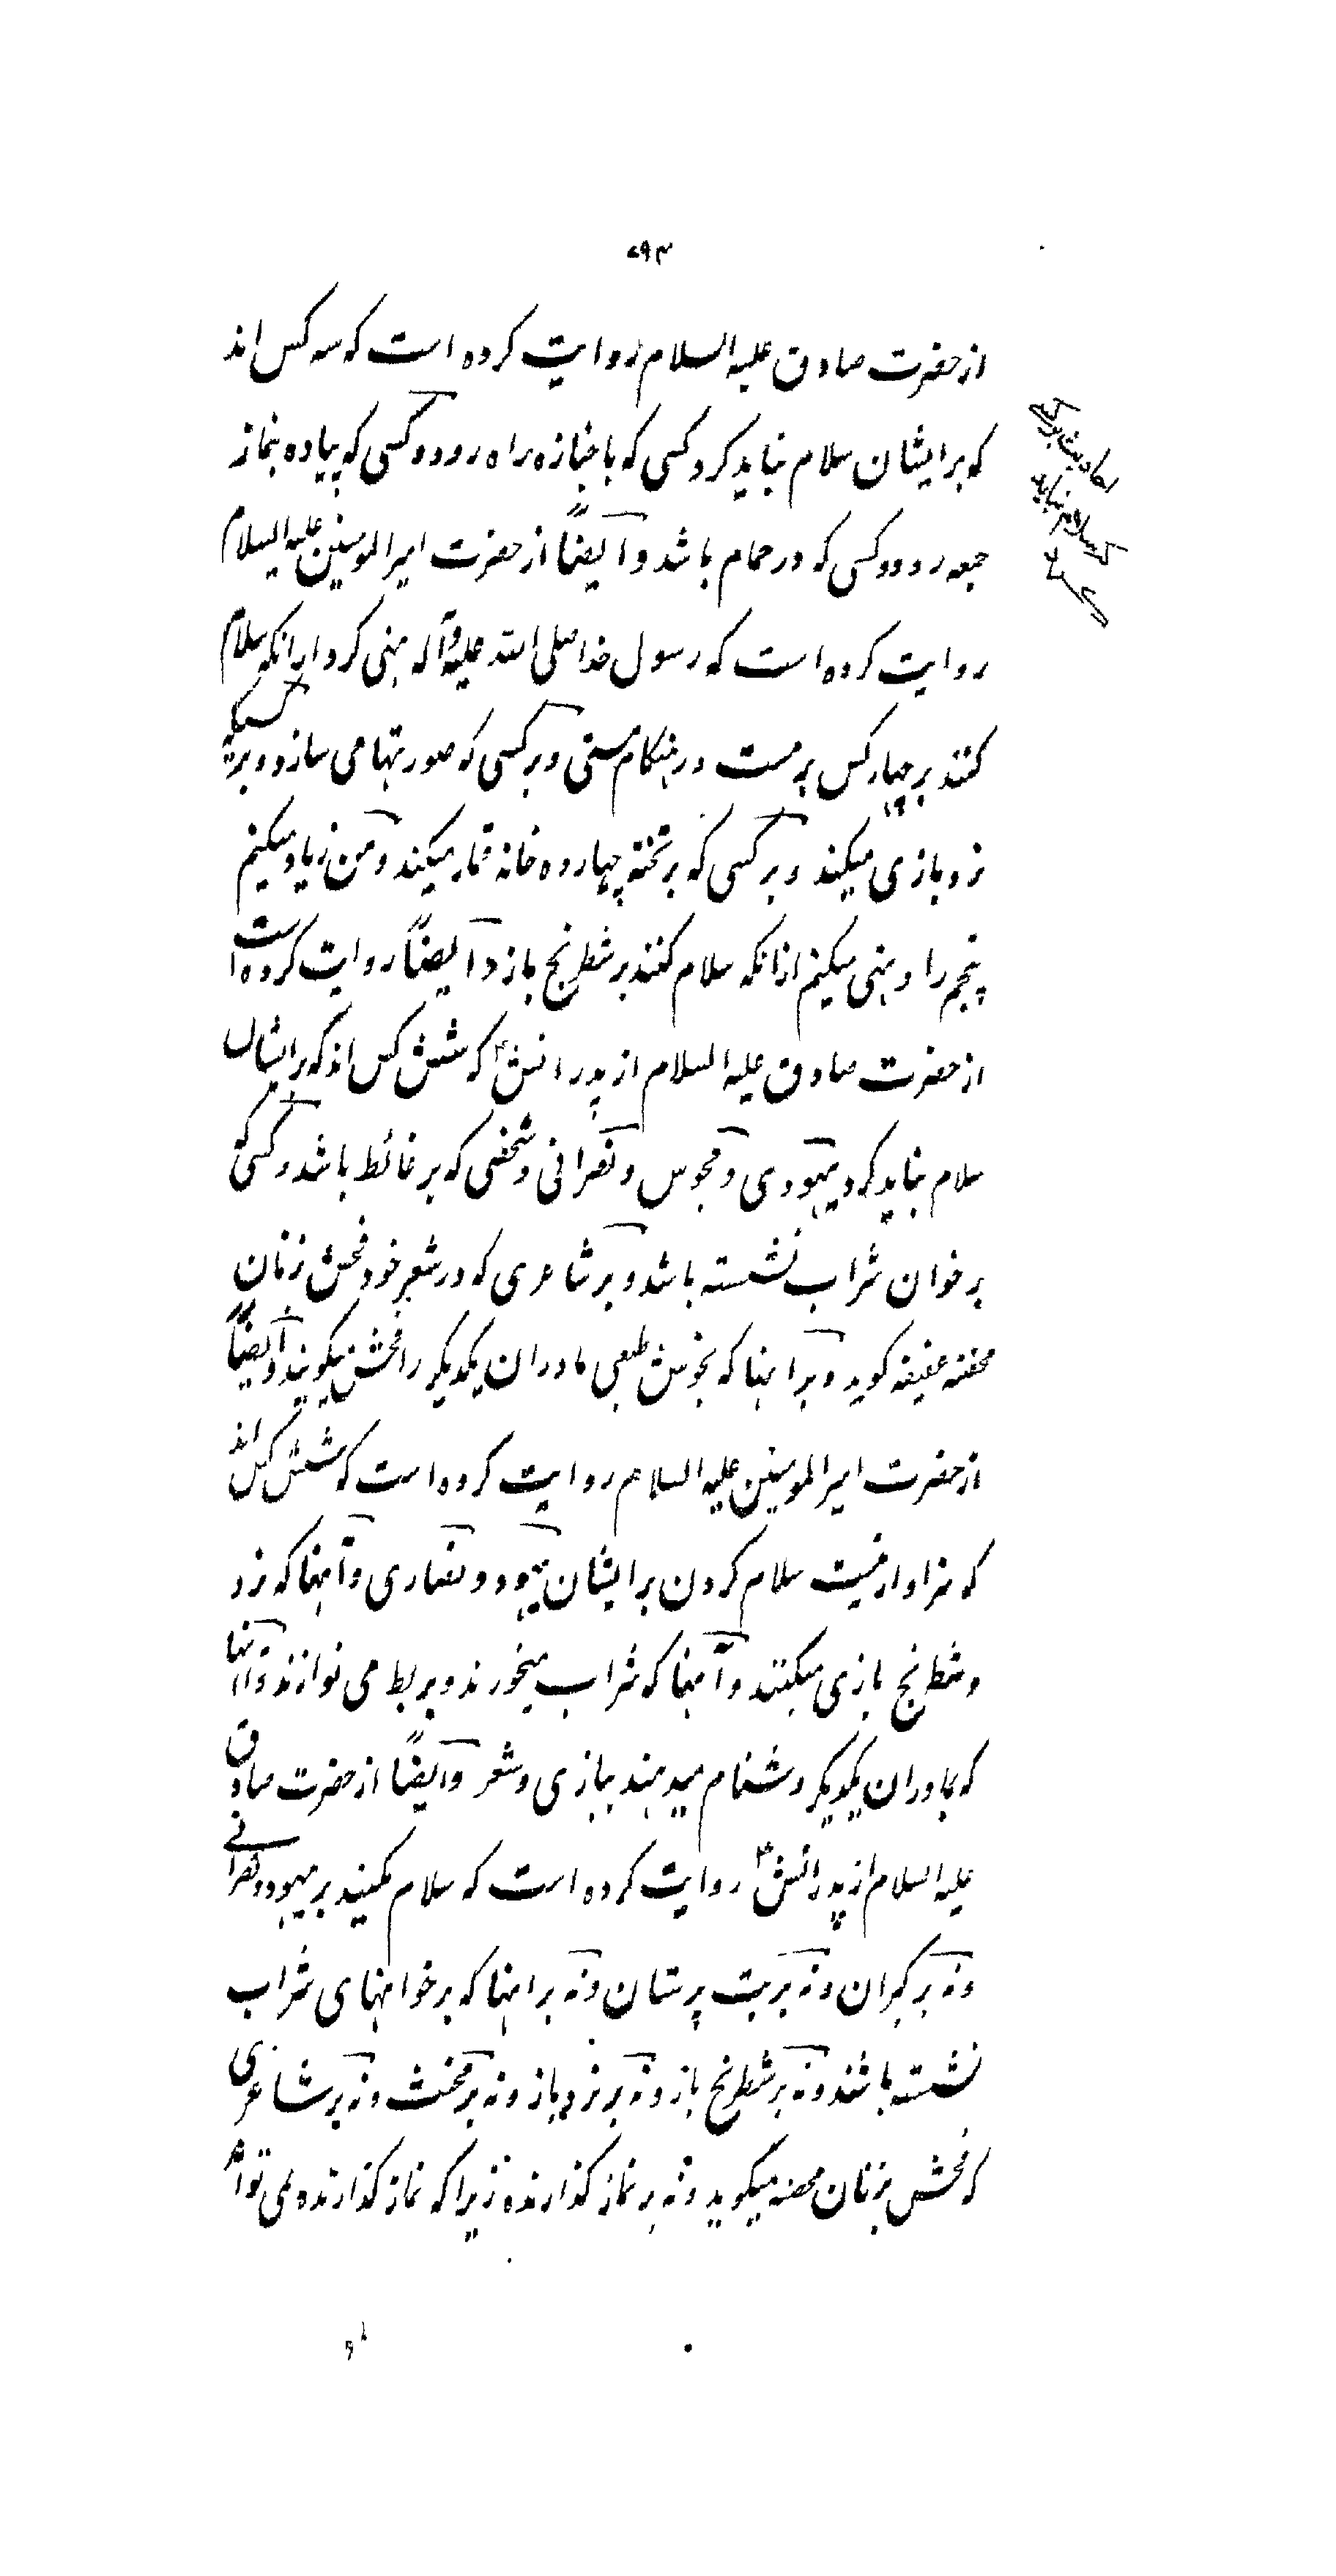 ۷۹۳
از حضرت صادق علیه السلام روایت کرده است که سه کس اند
که بر ایشان سلام نباید کرد کسی که با جنازه راه رود و کسی که پیاده بنماز
جمعه رود و کسی که در حمام باشد و ایضاً از حضرت امیر المومنین علیه السلام
روایت کرده است که رسول خدا صلی الله علیه و آله نهی کرد از انکه سلام
کنند بر چهار کس بر مست در هنکام مستی و بر کسی که صورتها می سازد و بر کسیکه
نرد بازی میکند و بر کسی که بر تخته چهارده خانه قمار میکند و من زیاد میکنم
پنجم را و نهی میکنم ازانکه سلام کنند بر شطرنج باز و ایضاً روایت کرده است
از حضرت صادق علیه السلام از پدرانش ع که شش کس اند که بر ایشان
سلام نباید کرد یهودی و مجوس و نصرانی و شخصی که بر غائط باشد و کسی که
بر خوان شراب نشسته باشد و بر شاعری که در شعر خود فحش زنان
محصنه عفیفه کوید و بر انها که بخوش طبعی مادران یکدیکر را فحش میکویند و ایضاً
از حضرت امیر المومنین علیه السلام روایت کرده است که شش کس اند
که سزاوار نیست سلام کردن بر ایشان یهود و نصاری و آنها که نرد
و شطرنج بازی میکنند و آنها که شراب میخورند و بربط می نوازند و انها
که بمادران یکدیکر دشنام میدهند ببازی و شعر و ایضاً از حضرت صادق
علیه السلام از پدرانش ع روایت کرده است که سلام مکنید بر یهود و نصرانی
و نه بر کبران و نه بر بت پرستان و نه بر انها که بر خوانهای شراب
نشسته باشند و نه بر شطرنج باز و نه بر نرد باز و نه بر مخنث و نه بر شاعری
که فحش بزنان محصنه میکوید و نه بر نماز کذارنده زیرا که نماز کذارنده نمی تواند